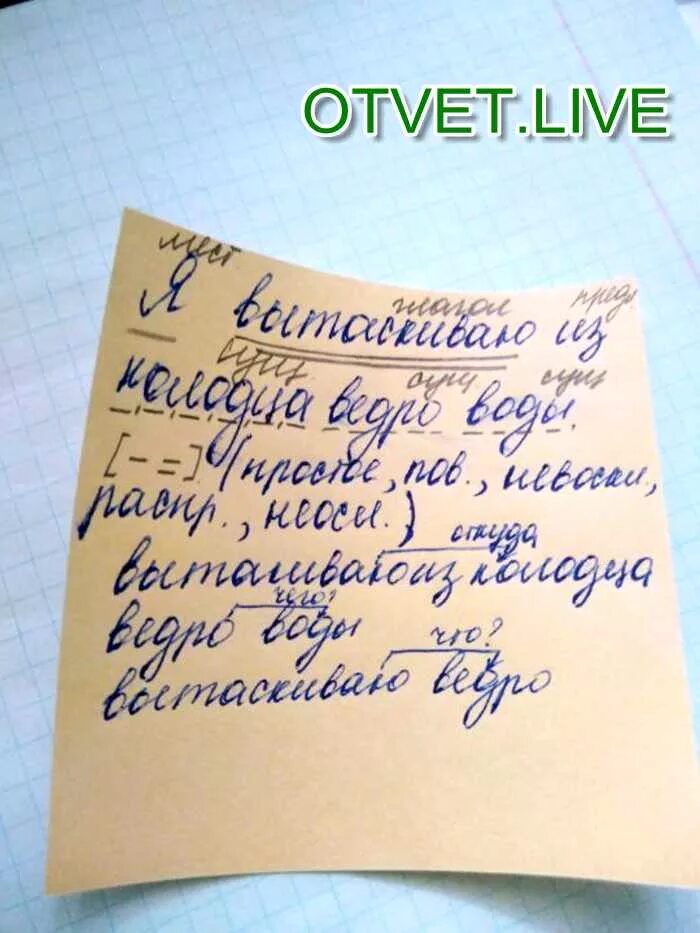 OTVET.LIVE
мест
глагол пред.
Я вытаскиваю из
сущ сущ сущ
колодца ведро воды.
[- =]. (простое, пов., невоскл.,
распр., неосл.)
откуда
выташиваю из колодца
чего?
ведро воды
что?
вытаскиваю ведро